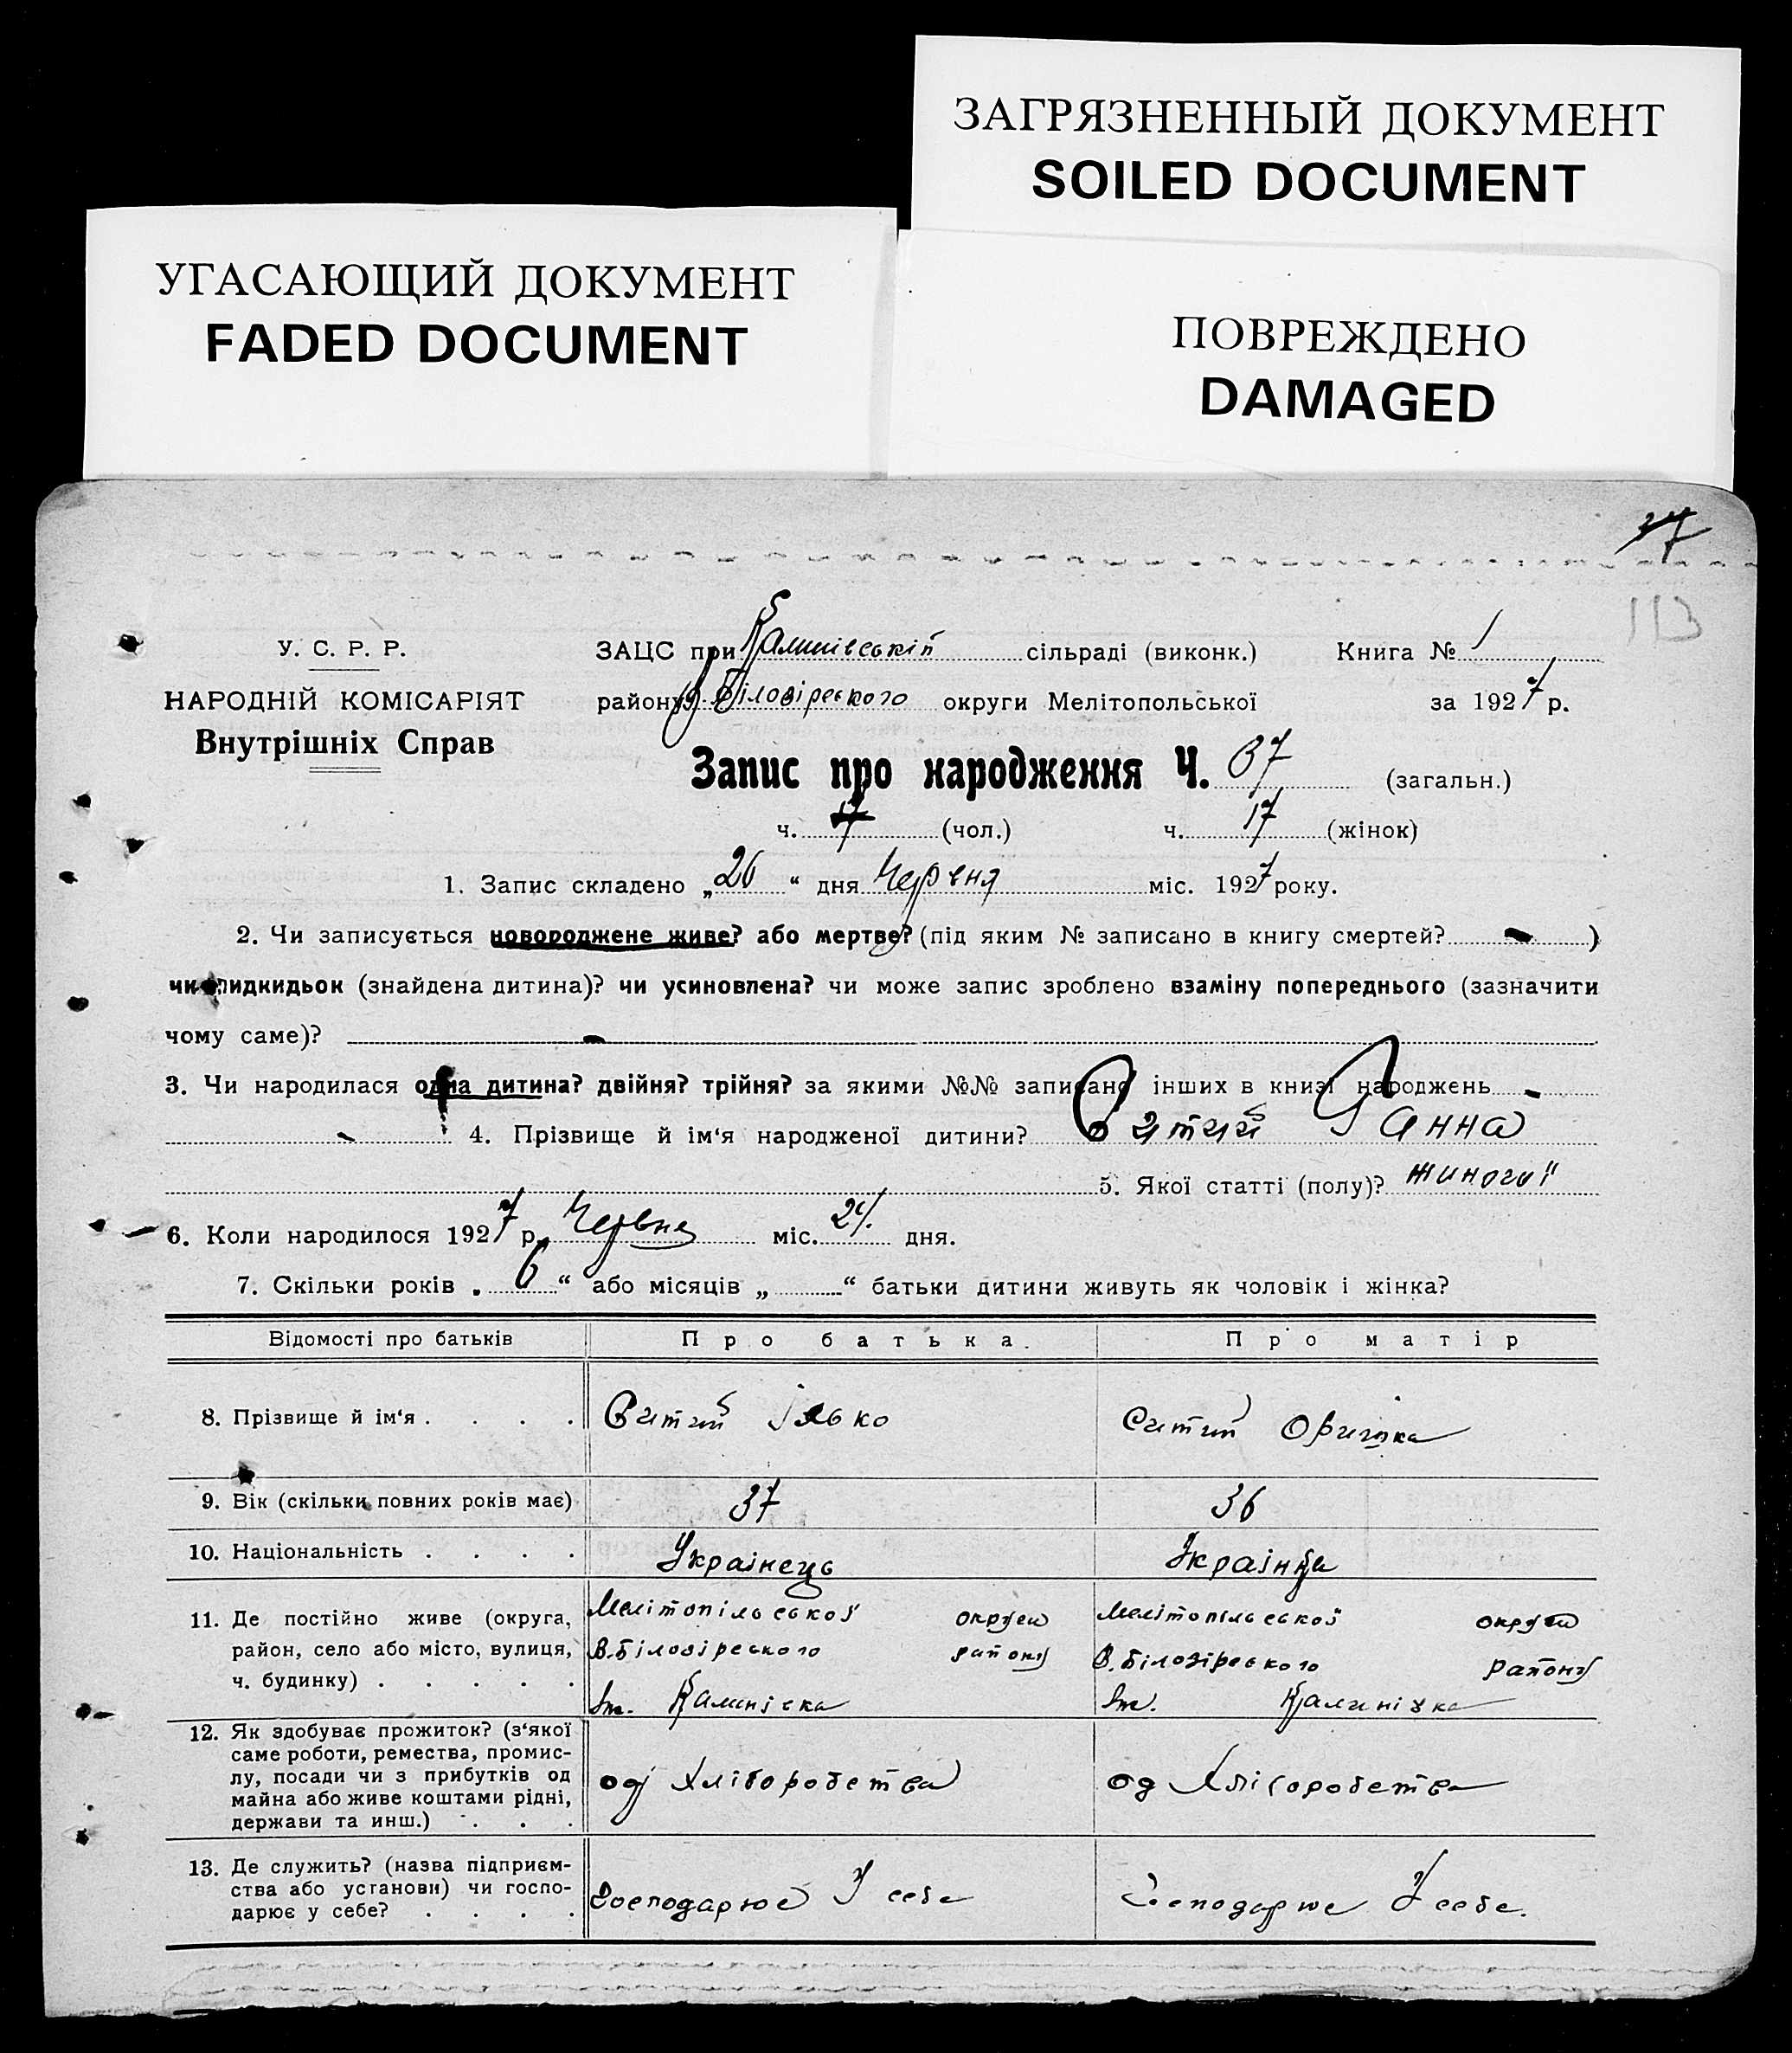 ЗАГРЯЗНЕННЫЙ ДОКУМЕНТ
SOILED DOCUMENT
УГАСАЮЩИЙ ДОКУМЕНТ
FADED DOCUMENT
ПОВРЕЖДЕНО
DAMAGED
37
113
У. С. Р. Р.
НАРОДНІЙ КОМІСАРІЯТ
Внутрішніх Справ
ЗАЦС при Калинівській сільраді (виконк.) Книга № 1
району В. Білозірского округи Мелітопольської за 1927 р.
Запис про народження Ч. 37 (загальн.)
ч. (чол.) ч. 17 (жінок)
1. Запис складено „26“ дня Червня міс. 1927 року.
2. Чи записується новороджене живе? або мертве? (під яким № записано в книгу смертей? - )
чи підкидьок (знайдена дитина)? чи усиновлена? чи може запис зроблено взаміну попереднього (зазначити
чому саме)? -
3. Чи народилася одна дитина? двійня? трійня? за якими №№ записано інших в книзі народжень -
- 4. Прізвище й ім‘я народженої дитини? Ситий Ганна
5. Якої статті (полу)? жиночої
6. Коли народилося 1927 р. Червня міс. 24 дня.
7. Скільки років „6“ або місяців „ “ батьки дитини живуть як чоловік і жінка?
Відомості про батьків Про батька. Про матір
8. Прізвище й ім‘я . . . . Ситий Ілько Ситий Оришка
9. Вік (скільки повних років має) 37 36
10. Національність . . . . Українець Українка
11. Де постійно живе (округа,
район, село або місто, вулиця,
ч. будинку) . . . . .
Мелітопільської округи
В. Білозірского району
Калинівка
Мелітопільської округи
В. Білозірского району
Калинівка
12. Як здобуває прожиток? (з‘якої
саме роботи, ремества, промис-
лу, посади чи з прибутків од
майна або живе коштами рідні,
держави та инш.) . . .
од Хліборобства
од Хліборобства
13. Де служить? (назва підприєм-
ства або установи) чи госпо-
дарює у себе? . . . .
Господарює У себе
Господарює У себе.